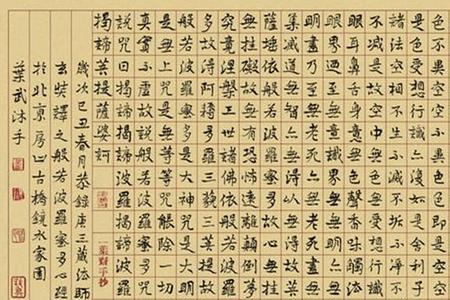 色不異空空不異色色即是空空
是色受想行識亦復如是舍利子
諸法空相不生不滅不垢不淨不
不減是故空中無色無受想行識
眼耳鼻舌身意無色聲香味觸法
眼界乃至無意識界無無明亦無
明盡乃至無老死亦無老死盡無
集滅道無智亦無得以無所得故
薩埵依般若波羅蜜多故心無掛
無掛礙故無有恐怖遠離顛倒夢
究竟涅槃三世諸佛依般若波羅
多故得阿耨多羅三藐三菩提故
般若波羅蜜多是大神咒是大明
是無上咒是無等等咒能除一切
真實不虛故說般若波羅蜜多咒
說咒曰揭諦揭諦波羅揭諦波羅
揭諦菩提薩婆訶
歲次己丑春月恭錄唐三藏法師
玄奘譯之般若波羅蜜多心經
於北京房山古橋鏡水家園
葉武沐手